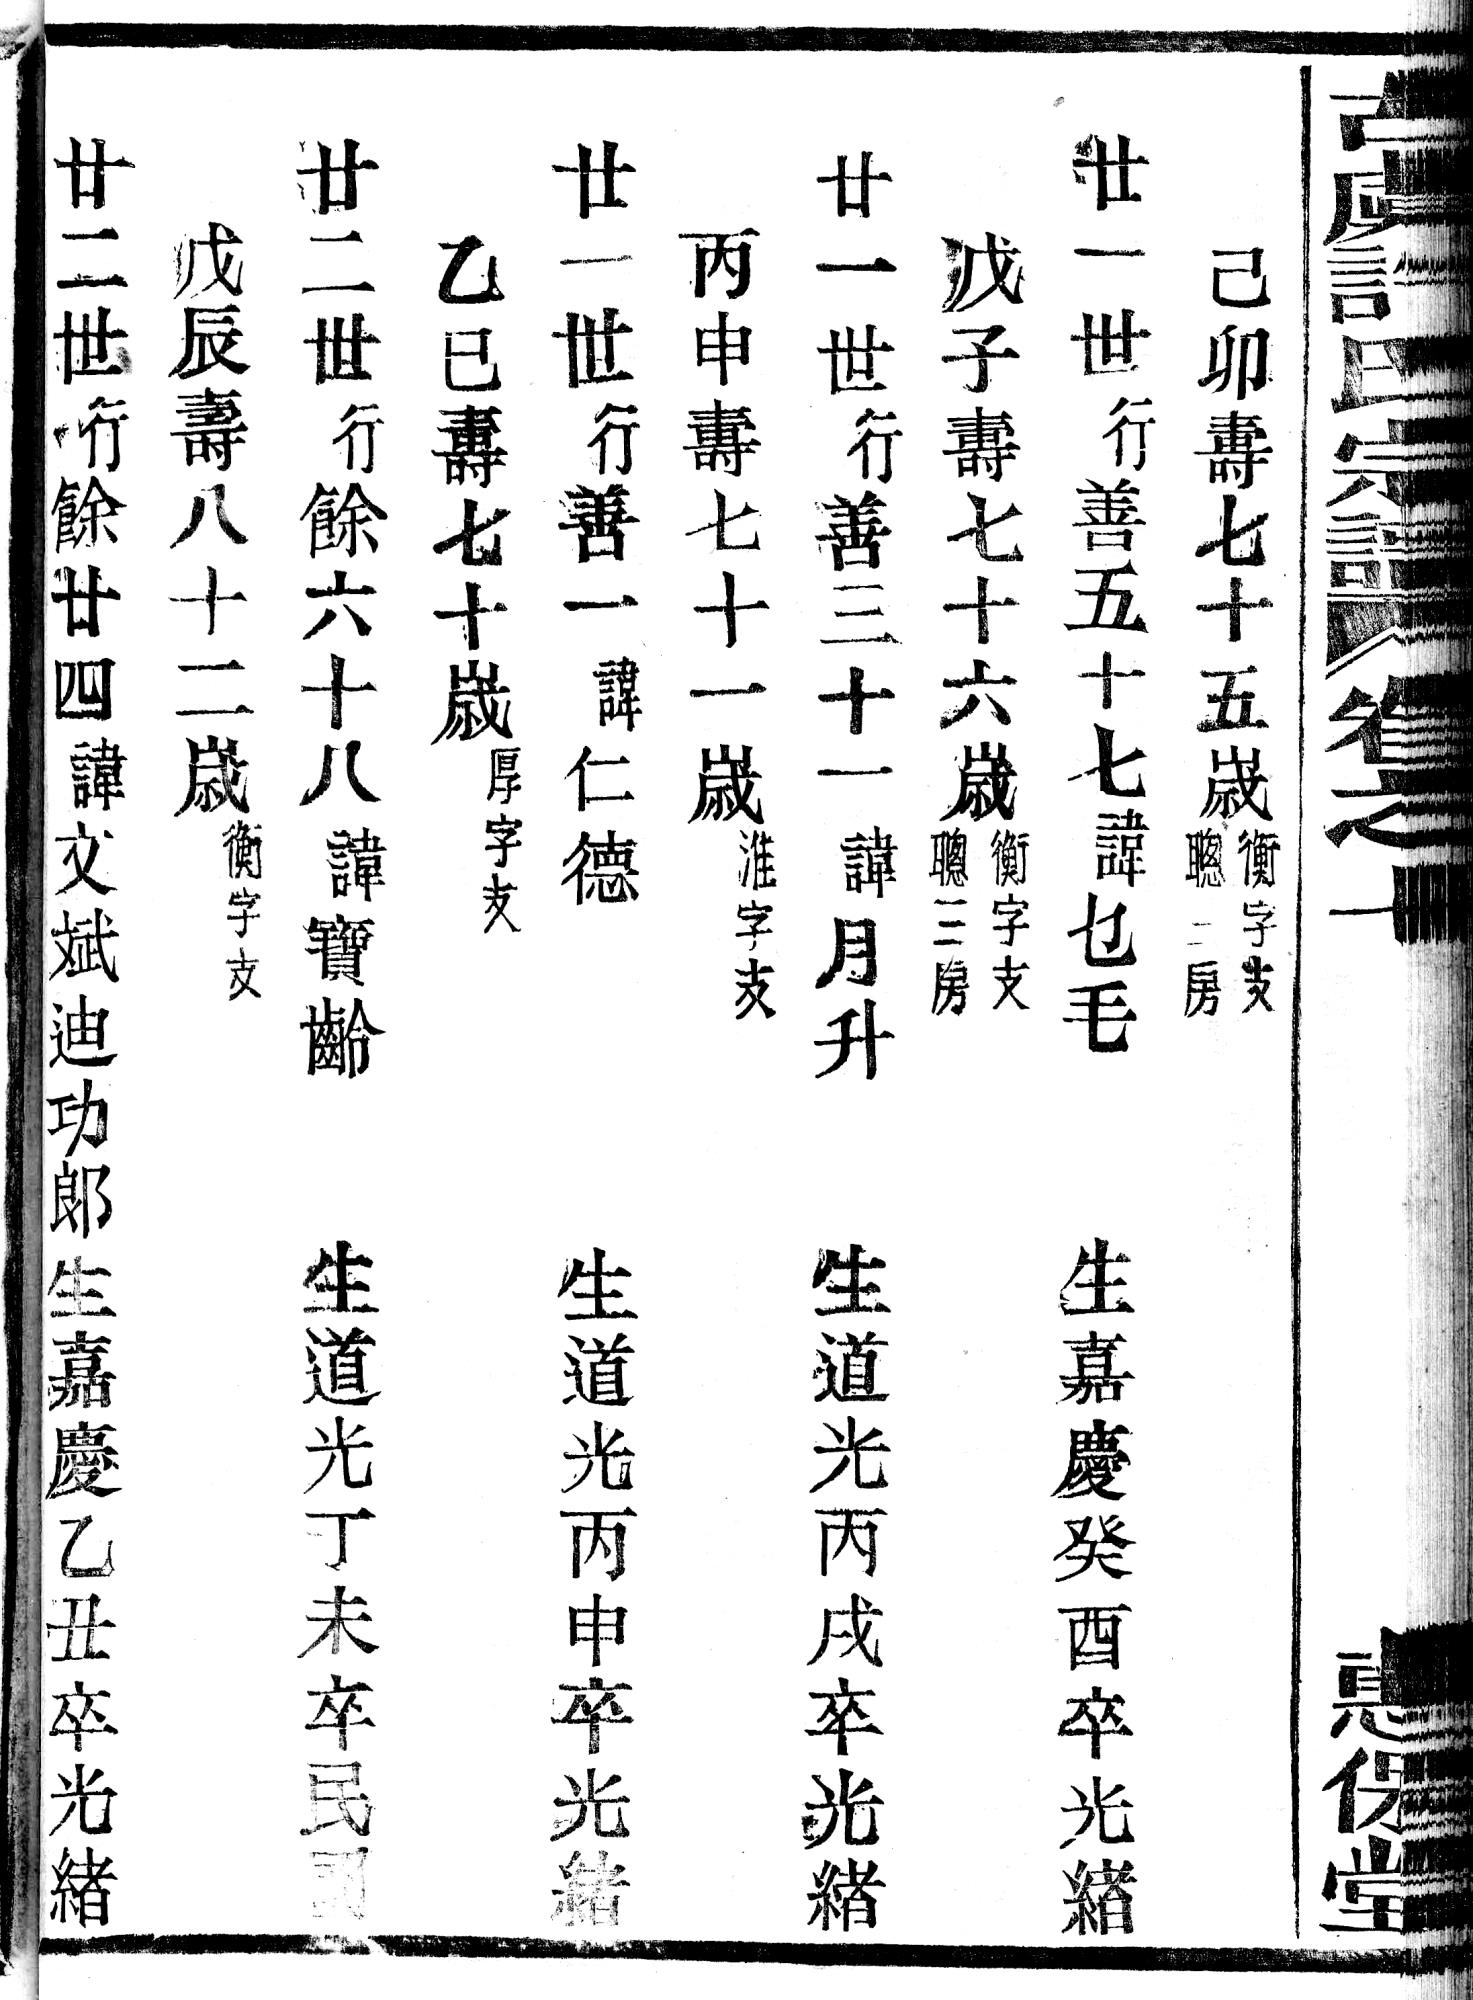 古虞許氏宗譜 卷之十 惇保堂
己卯壽七十五歲 衡字支 聰二房
廿一世行善五十七諱乜毛 生嘉慶癸酉卒光緒
戊子壽七十六歲 衡字支 聰三房
廿一世行善三十一諱月升 生道光丙戌卒光緒
丙申壽七十一歲 淮字支
廿一世行善一諱仁德 生道光丙申卒光緒
乙巳壽七十歲 厚字支
廿二世行餘六十八諱寶齡 生道光丁未卒民國
戊辰壽八十二歲 衡字支
廿二世行餘廿四諱文斌迪功郎生嘉慶乙丑卒光緒